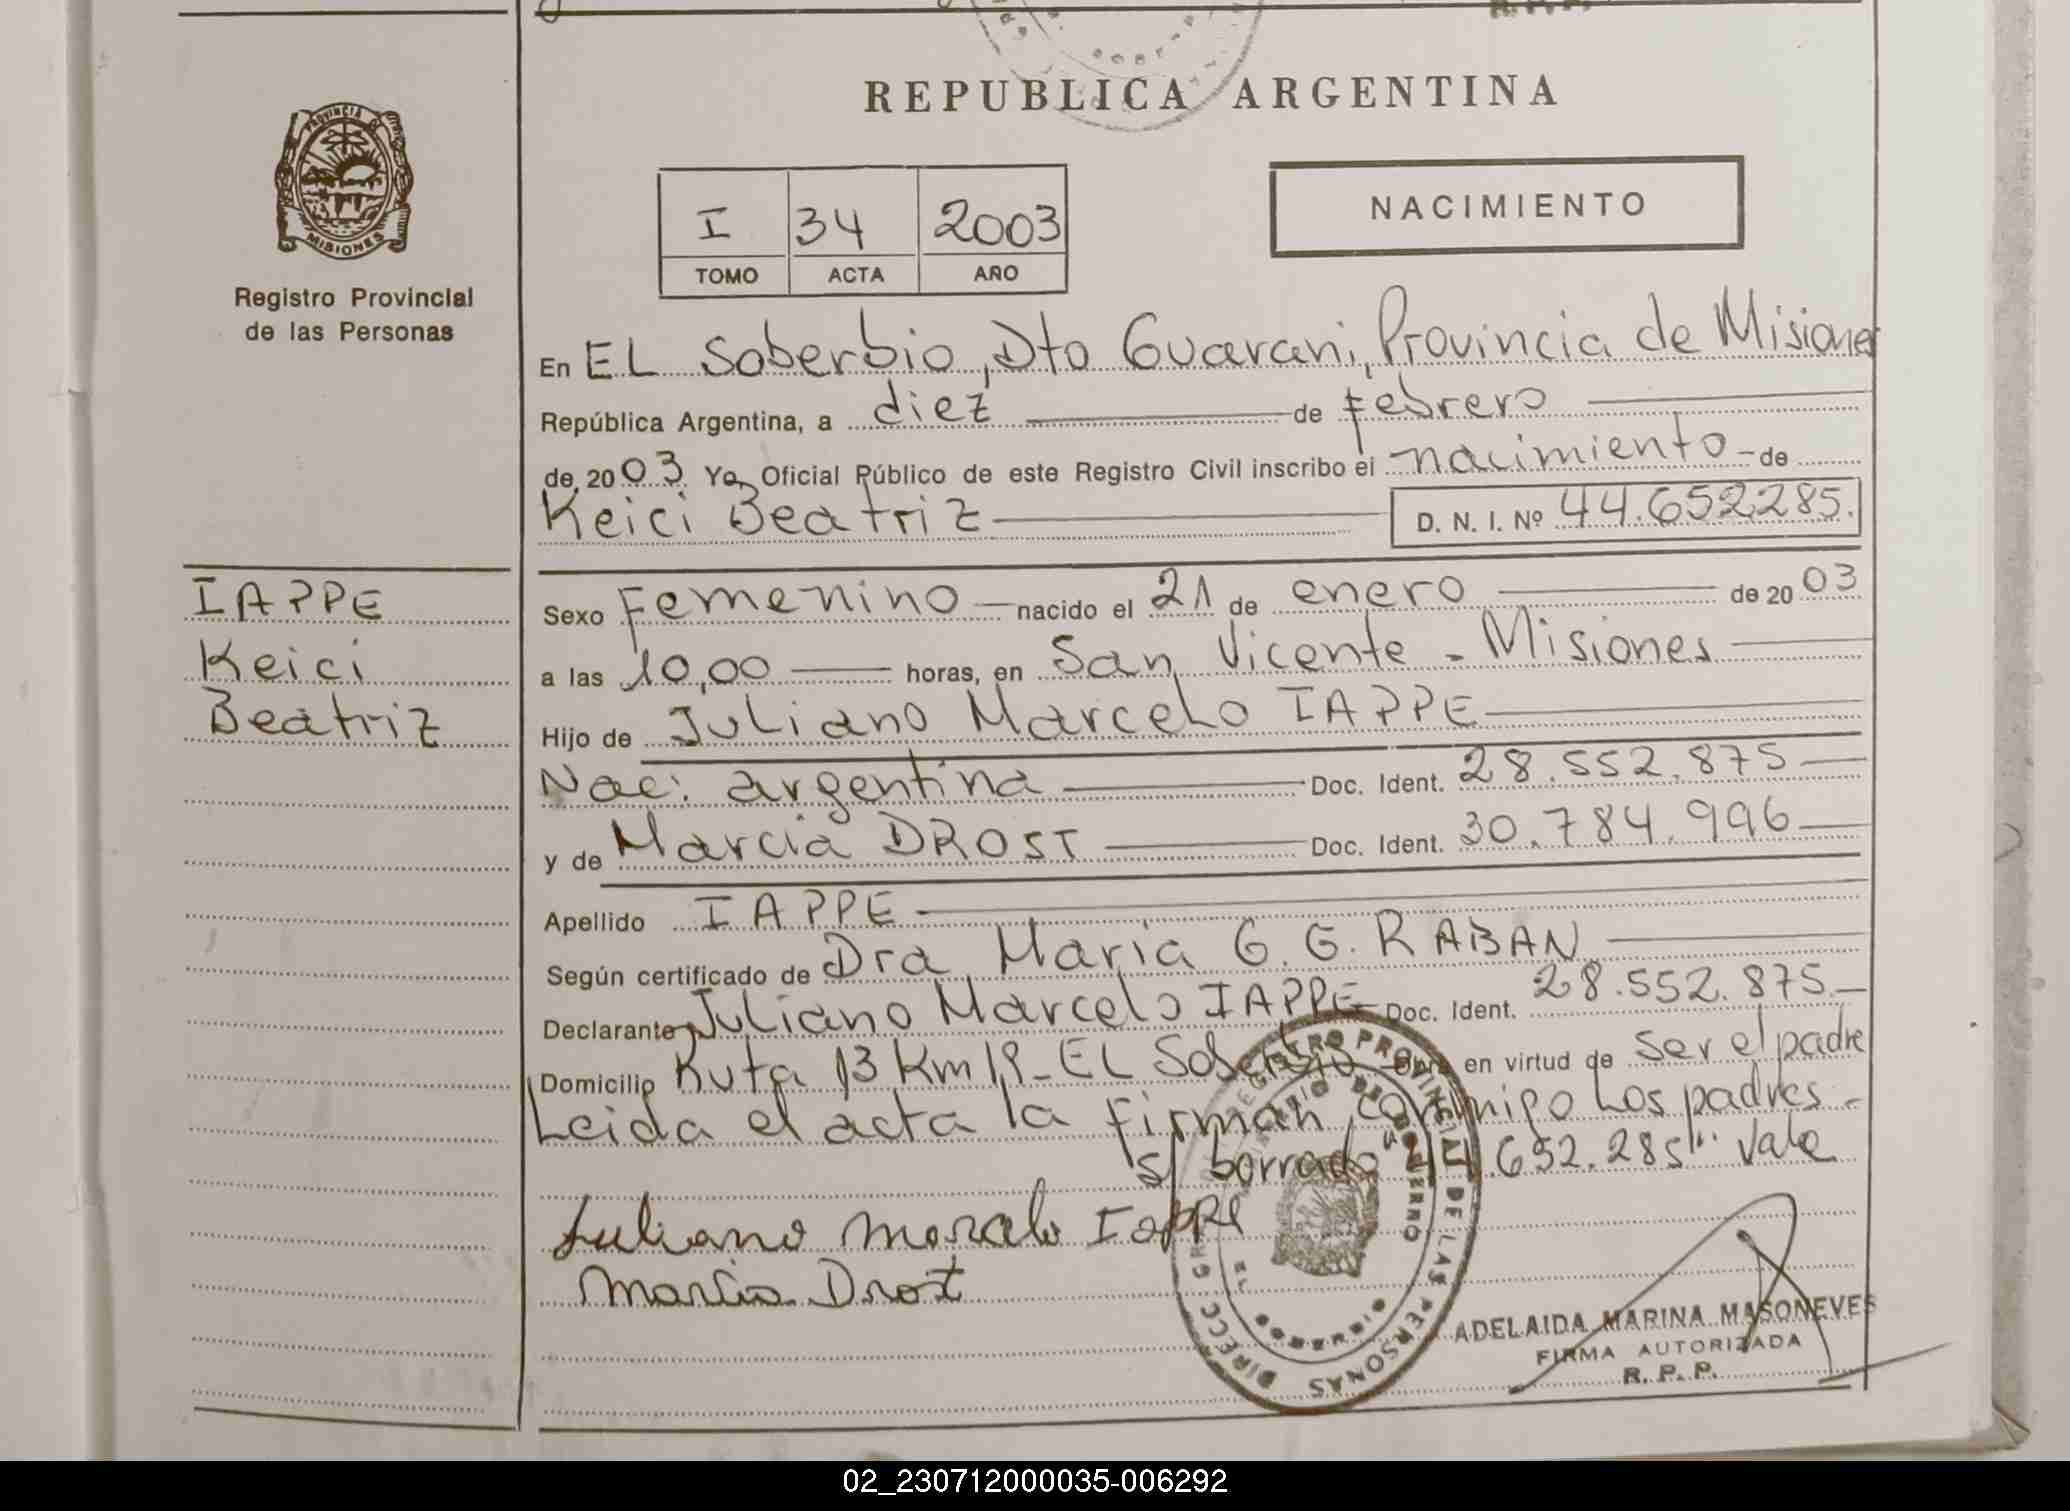 REPUBLICA ARGENTINA
PROVINCIA DE
MISIONES
Registro Provincial
de las Personas
I 34 2003
TOMO ACTA AÑO
NACIMIENTO
En EL Soberbio, Dto Guarani, Provincia de Misiones
República Argentina, a diez de Febrero
de 2003 Yo, Oficial Público de este Registro Civil inscribo el nacimiento - de
Keici Beatriz D. N. I. Nº 44.652.285.
IAPPE
Keici
Beatriz
Sexo Femenino nacido el 21 de enero de 2003
a las 10,00 horas, en San Vicente - Misiones
Hijo de Juliano Marcelo IAPPE
Nac: argentina Doc. Ident. 28.552.875
y de Marcia DROST Doc. Ident. 30.784.996
Apellido IAPPE
Según certificado de Dra Maria G. G. RABAN
Declarante Juliano Marcelo IAPPE Doc. Ident. 28.552.875
Domicilio Ruta 13 Km 18 - EL Soberbio en virtud de ser el padre
Leida el acta la firman conmigo Los padres -
s/ borrado "44.652.285" vale
Juliano Marcelo Iappe
Marcia Drost
REGISTRO PROVINCIAL DE LAS PERSONAS
MINISTERIO DE GOBIERNO
ADELAIDA MARINA MASONEVES
FIRMA AUTORIZADA
R. P. P.
02_230712000035-006292